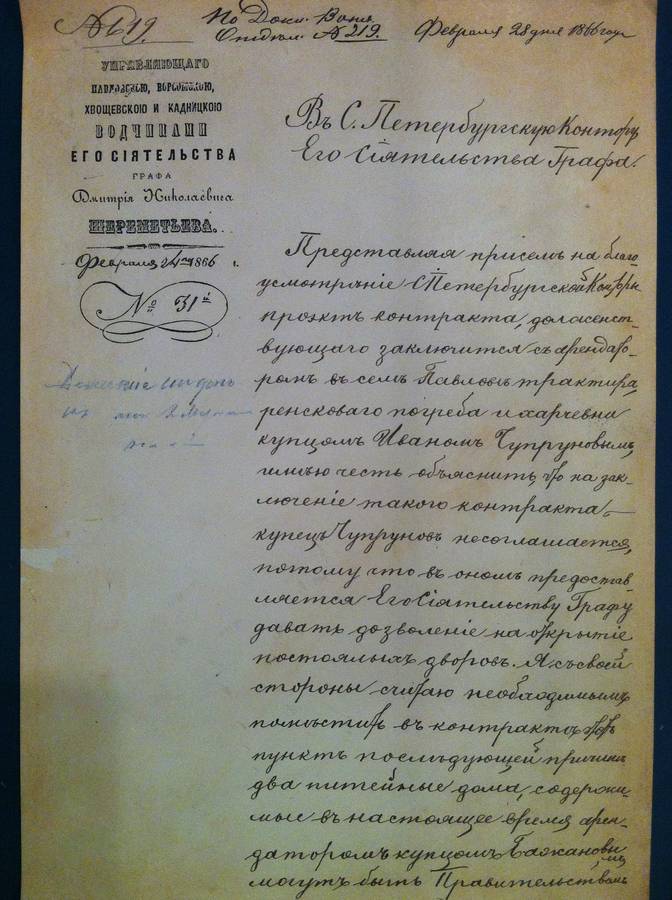 № 619.
По Докл. Вотч.
Отдѣл. № 219.
Февраля 28 дня 1866 года
УПРАВЛЯЮЩАГО
ПАВЛОВСКОЮ, ВОРСОМСКОЮ,
ХВОЩЕВСКОЮ И КАДНИЦКОЮ
ВОТЧИНАМИ
ЕГО СІЯТЕЛЬСТВА
ГРАФА
Дмитрія Николаевича
ШЕРЕМЕТЬЕВА.
Февраля 24 дня 1866 г.
№ 31й
Въ С. Петербургскую Контору
Его Сіятельства Графа.
Представляя при семъ на благо-
усмотрѣніе С Петербургской Конторы
проэктъ контракта, долженст-
вующаго заключится съ арендато-
ромъ въ селѣ Павловѣ трактира,
ренсковаго погреба и харчевни
купцомъ Иваномъ Чупруновымъ,
имѣю честь объяснить, что на зак-
люченіе такого контракта
купецъ Чупруновъ несоглашается,
потому что въ ономъ предостав-
ляется Его Сіятельству Графу
давать дозволеніе на открытіе
постоялыхъ дворовъ. Я съ своей
стороны считаю необходимымъ
помѣстить въ контрактѣ этотъ
пунктъ по слѣдующей причинѣ
два питейные дома, содержи-
мые въ настоящее время арен-
даторомъ купцомъ Бажановы-
мъ могутъ быть Правительствомъ